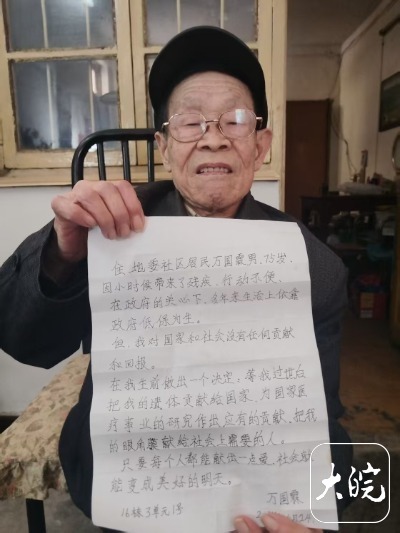 住地委社区居民万国霞男、75岁、
因小时候带来了残疾，行动不便，
在政府的关心下，多年来生活上依靠
政府低保为生。
但，我对国家和社会没有任何贡献
和回报。
在我生前做出一个决定：等我过世后
把我的遗体贡献给国家，为国家医
疗事业的研究作出应有的贡献，把我
的眼角膜献给社会上需要的人。
只要每个人都能献出一点爱，社会就
能变成美好的明天。
万国霞
16栋3单元1号
大皖